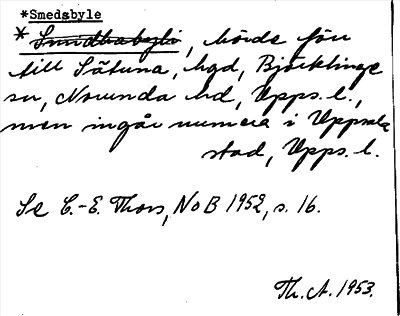 *Smedsbyle
* Smidhabyli, hörde förr
till Sätuna, hgd, Björklinge
sn, Norunda hd, Upps. l.,
men ingår numera i Uppsala
stad, Upps. l.
Se C.-E. Thors, NoB 1952, s. 16.
Th. A. 1953.